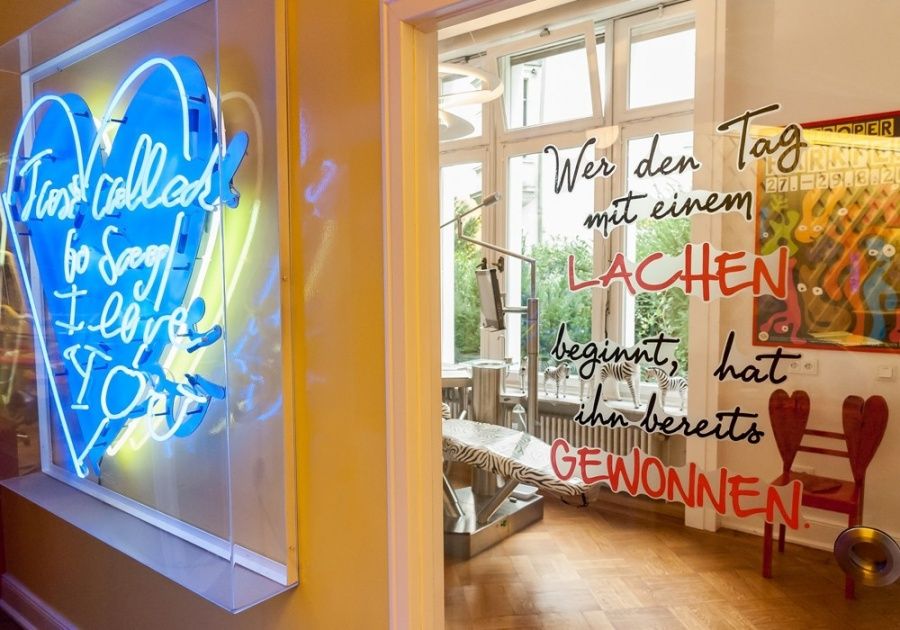 I Just Called
to Say
I love
You
Wer den Tag
mit einem
LACHEN
beginnt, hat
ihn bereits
GEWONNEN.